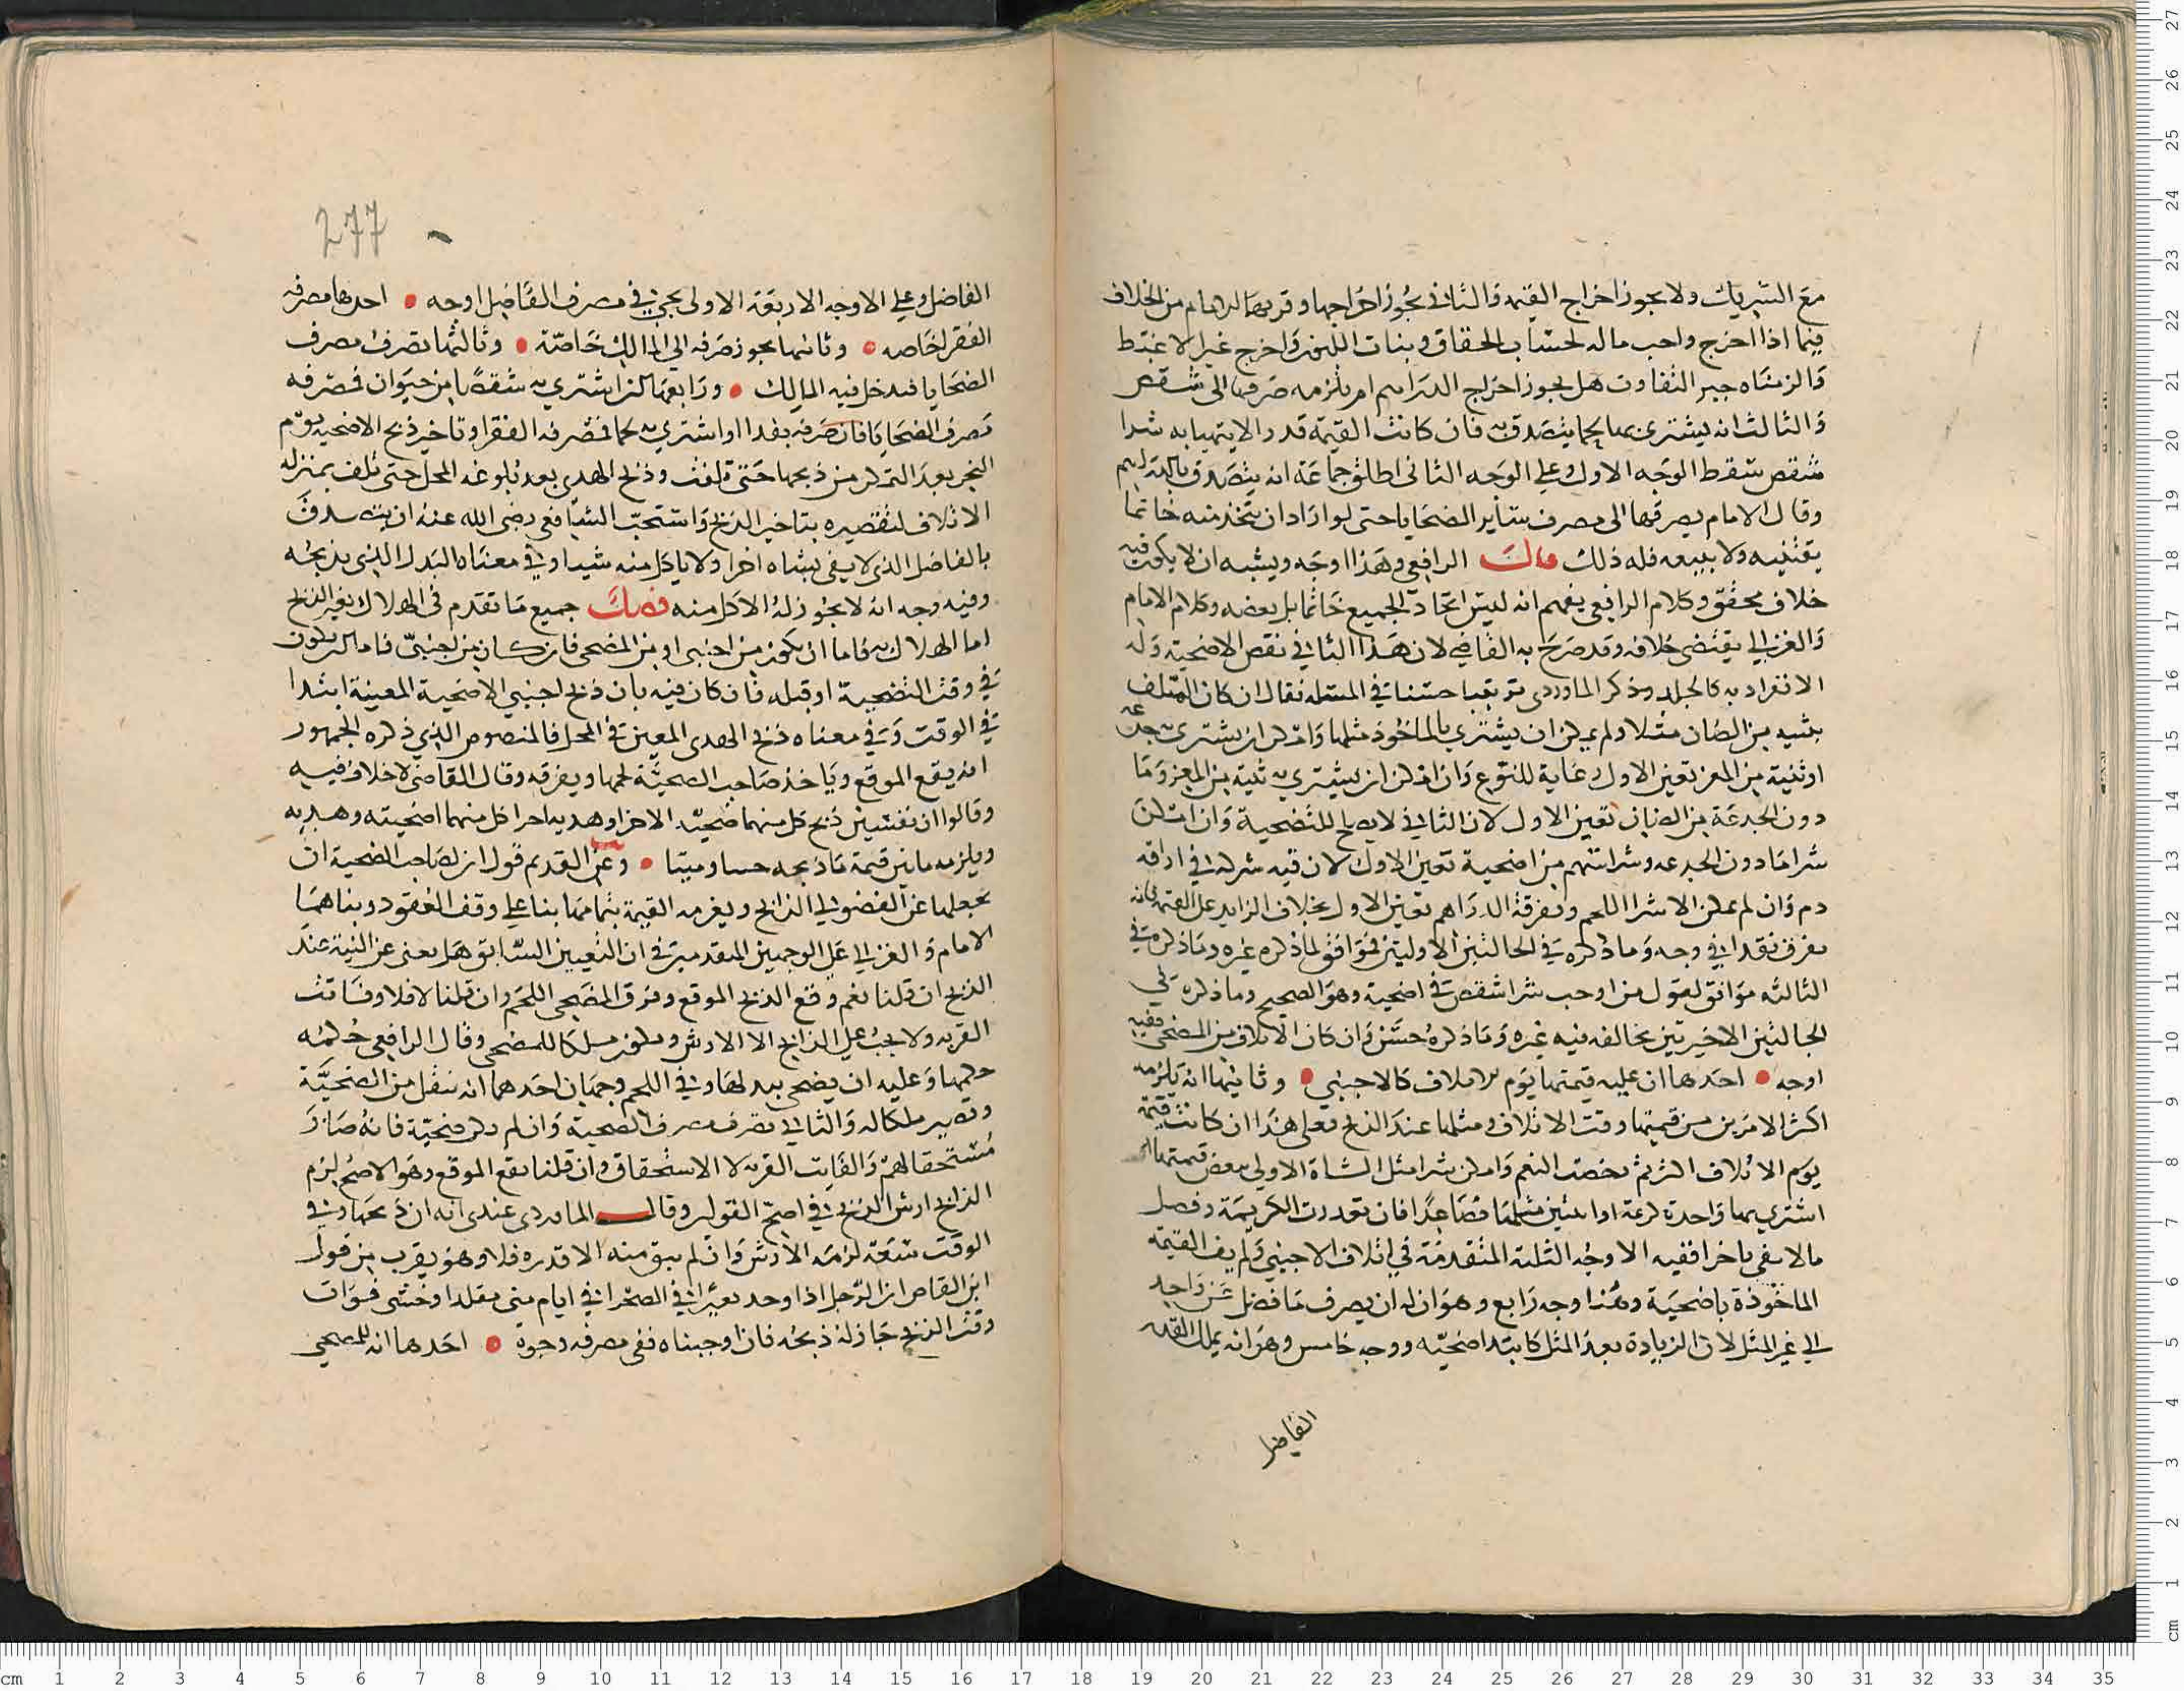 مع الشريك ولا يجوز اخراج القيمه والثاني يجوز اخراجها وقربهما الامام من الخلاف
فيما اذا اخرج واجب ماله لحساب الحقاق وبنات اللبون واخرج غير الاغبط
والزمناه جبر التفاوت هل يجوز اخراج الدراهم ام يلزمه صرفها الى شقص
والثالث انه يشتري بها لحما يتصدق به فان كانت القيمة قدرا لا يتهيا به شرا
شقص سقط الوجه الاول وعلى الوجه الثاني اطلق جماعة انه يتصدق بالدراهم
وقال الامام يصرفها الى مصرف ساير الضحايا حتى لو اراد ان يتخذ منه خاتما
يقتنيه ولا يبيعه فله ذلك قال الرافعي وهذا اوجه ويشبه ان لا يكون فيه
خلاف محقق وكلام الرافعي يفهم انه ليس اتحاد الجميع خاتما بل بعضه وكلام الامام
والغزالي يقتضي خلافه وقد صرح به القاضي لان هذا الثاني نقص الاضحية وله
الانفراد به كالجلد وذكر الماوردي ترتيبا حسنا في المسئله فقال ان كان المتلف
بثنيه من الضان مثلا ولم يمكن ان يشتري بالماخوذ مثلها وامكن ان يشتري به جذعه
او ثنية من المعز تعين الاول رعاية للنوع وان امكن ان يشتري به ثنية من المعز وما
دون الجذعة من الضان تعين الاول لان الثاني لا يصلح للتضحية وان امكن
شرا ما دون الجذعه وشرا سهم من اضحية تعين الاول لان فيه شركة في اراقه
دم وان لم يمكن الا شرا اللحم وتفرقة الدراهم تعين الاول بخلاف الزايد على القيمه فانه
يفرق نقدا في وجه وما ذكره في الحالتين الاوليتين موافق لما ذكره غيره وما ذكره في
الثالثه موافق لقول من اوجب شرا شقص في اضحية وهو الصحيح وما ذكره في
الحالتين الاخيرتين يخالفه فيه غيره وما ذكره حسن وان كان الاتلاف من المضحي ففيه
اوجه • احدها ان عليه قيمتها يوم الاتلاف كالاجنبي • وثانيها انه يلزمه
اكثر الامرين من قيمتها وقت الاتلاف ومثلها عند الذبح فعلى هذا ان كانت قيمة
يوم الاتلاف اكثر ثم رخصت الغنم وامكن شرا مثل الشاة الاولى ببعض قيمتها
اشترى بها واحدة كريمة او اثنتين مثلها فصاعدا فان تعذرت الكريمة وفضل
مالا يفي باخرى ففيه الاوجه الثلثة المتقدمة في اتلاف الاجنبي ولم يف القيمه
الماخوذة باضحية وهنا وجه رابع وهو ان له ان يصرف ما فضل عن واحد
الى غير المثل لان الزيادة بعد المثل كابتدا اضحيه ووجه خامس وهو انه يملك القدر
الفاضل
277
الفاضل وعلى الاوجه الاربعة الاولى يجي في مصرف الفاضل اوجه • احدها مصرفه
الفقرا خاصه • وثانيها يجوز صرفه الى المالك خاصة • وثالثها تصرف مصرف
الضحايا فيدخل فيه المالك • ورابعها كمن اشترى به شقصا من حيوان فصرفه
مصرف الضحايا فان صرفه نقدا او اشترى به لحما فمصرفه الفقرا وتاخير ذبح الاضحيه يوم
النحر بعد التمكن من ذبحها حتى تلفت وذبح الهدي بعد بلوغه المحل حتى تلف بمنزلة
الاتلاف لتقصيره بتاخير الذبح واستحب الشافعي رضي الله عنه ان يتصدق
بالفاضل الذي لا يفي بشاه اخرى ولا ياكل منه شيا وفي معناه البدل الذي يذبحه
وفيه وجه انه لا يجوز له الاكل منه فصل جميع ما تقدم في الهلاك بغير الذبح
اما الهلاك به فاما ان يكون من اجنبي او من المضحي فان كان من اجنبي فاما ان يكون
في وقت التضحية او قبله فان كان فيه بان ذبح اجنبي الاضحية المعينة ابتدا
في الوقت وفي معناه ذبح الهدي المعين في المحل فالمنصوص الذي ذكره الجمهور
انه يقع الموقع وياخذ صاحب الضحية لحمها ويفرقه وقال القاضي لا خلاف فيه
وقالوا ان نفسين ذبح كل منهما ضحية الاخر او هديه اجزا كل منهما اضحيته وهديه
ويلزمه ما بين قيمة ما ذبحه حيا وميتا • وعن القديم قول ان لصاحب الضحية ان
يجعلها عن الفضولي الذابح ويغرمه القيمة بتمامها بنا على وقف العقود وبناهما
الامام والغزالي على الوجهين المتقدمين في ان التعيين السابق هل يغني عن النية عند
الذبح ان قلنا نعم وقع الذبح الموقع وفرق المضحي اللحم وان قلنا لا فلا وفاتت
القربه ولا يجب على الذابح الا الارش ويكون ملكا للمضحي وقال الرافعي حكمه
حكمها وعليه ان يضحي ببدلها وفي اللحم وجهان احدهما انه ينفك من الضحية
وتصير ملكا له والثاني تصرف مصرف الضحية وان لم يكن ضحية فانه صار
مستحقا لهم والفايت القربه لا الاستحقاق وان قلنا يقع الموقع وهو الاصح لزم
الذابح ارش الذبح في اصح القولين وقال الماوردي عندي انه ان ذبحها وفي
الوقت سعة لزمه الارش وان لم يبق منه الا قدره فلا وهو يقرب من قول
ابن القاص ان الرجل اذا وجد بعيرا في الصحرا في ايام منى مقلدا وخشي فوات
وقت الذبح جاز له ذبحه فان اوجبناه ففي مصرفه وجوه • احدها انه للمضحي